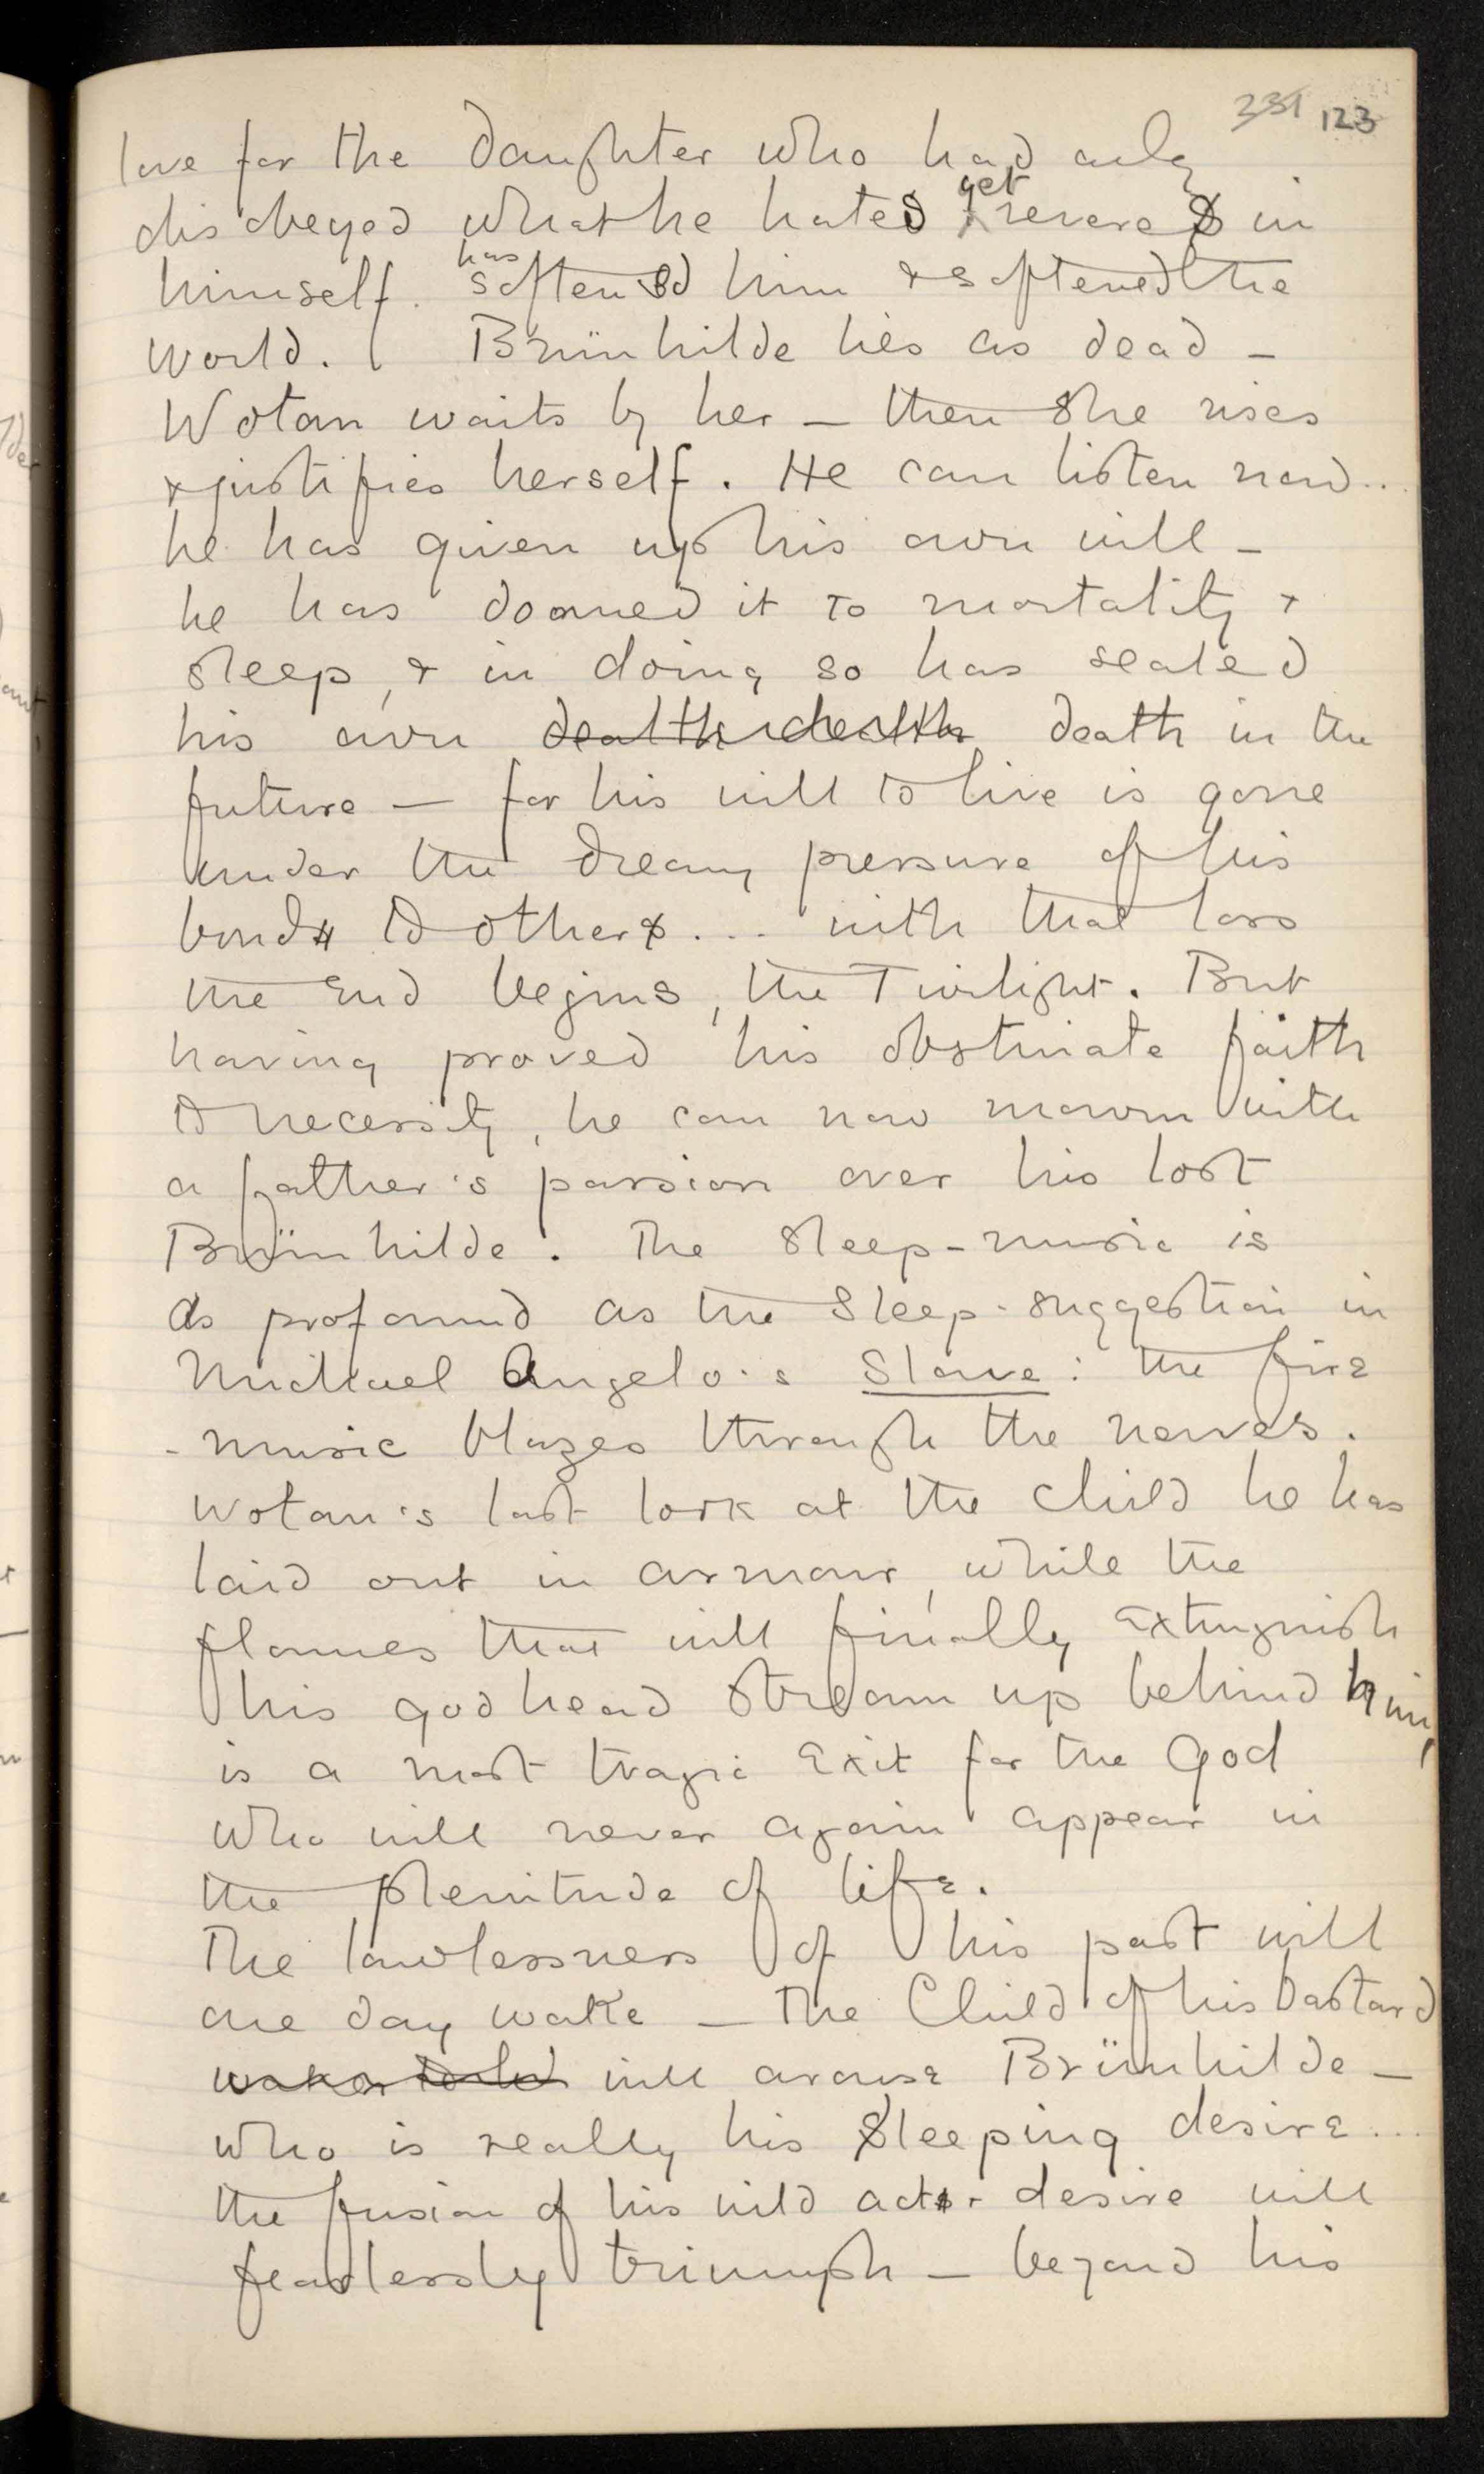 231 123
love for the daughter who had only
disobeyed what he hated yet reveres in
himself. has softened him & softened the
world. Brünhilde lies as dead –
Wotan waits by her – then she rises
& justifies herself. He can listen now..
he has given up his own will –
he has doomed it to mortality &
sleep, & in doing so has sealed
his own death death death in the
future – for his will to live is gone
under the dreary pressure of his
bonds to others... with that loss
the End begins, the Twilight. But
having proved his obstinate faith
to necessity, he can now mourn with
a father's passion over his lost
Brünhilde. The Sleep-music is
as profound as the Sleep-suggestion in
Michael Angelo's Slave: the fire
-music blazes through the nerves.
Wotan's last look at the child he has
laid out in armour, while the
flames that will finally extinguish
his godhead stream up behind him,
is a most tragic Exit for the God
who will never again appear in
the plenitude of life.
The lawlessness of his past will
one day wake – The Child of his bastard
will arouse Brünhilde –
who is really his Sleeping desire...
the fusion of his wild act & desire will
fearlessly triumph – beyond his